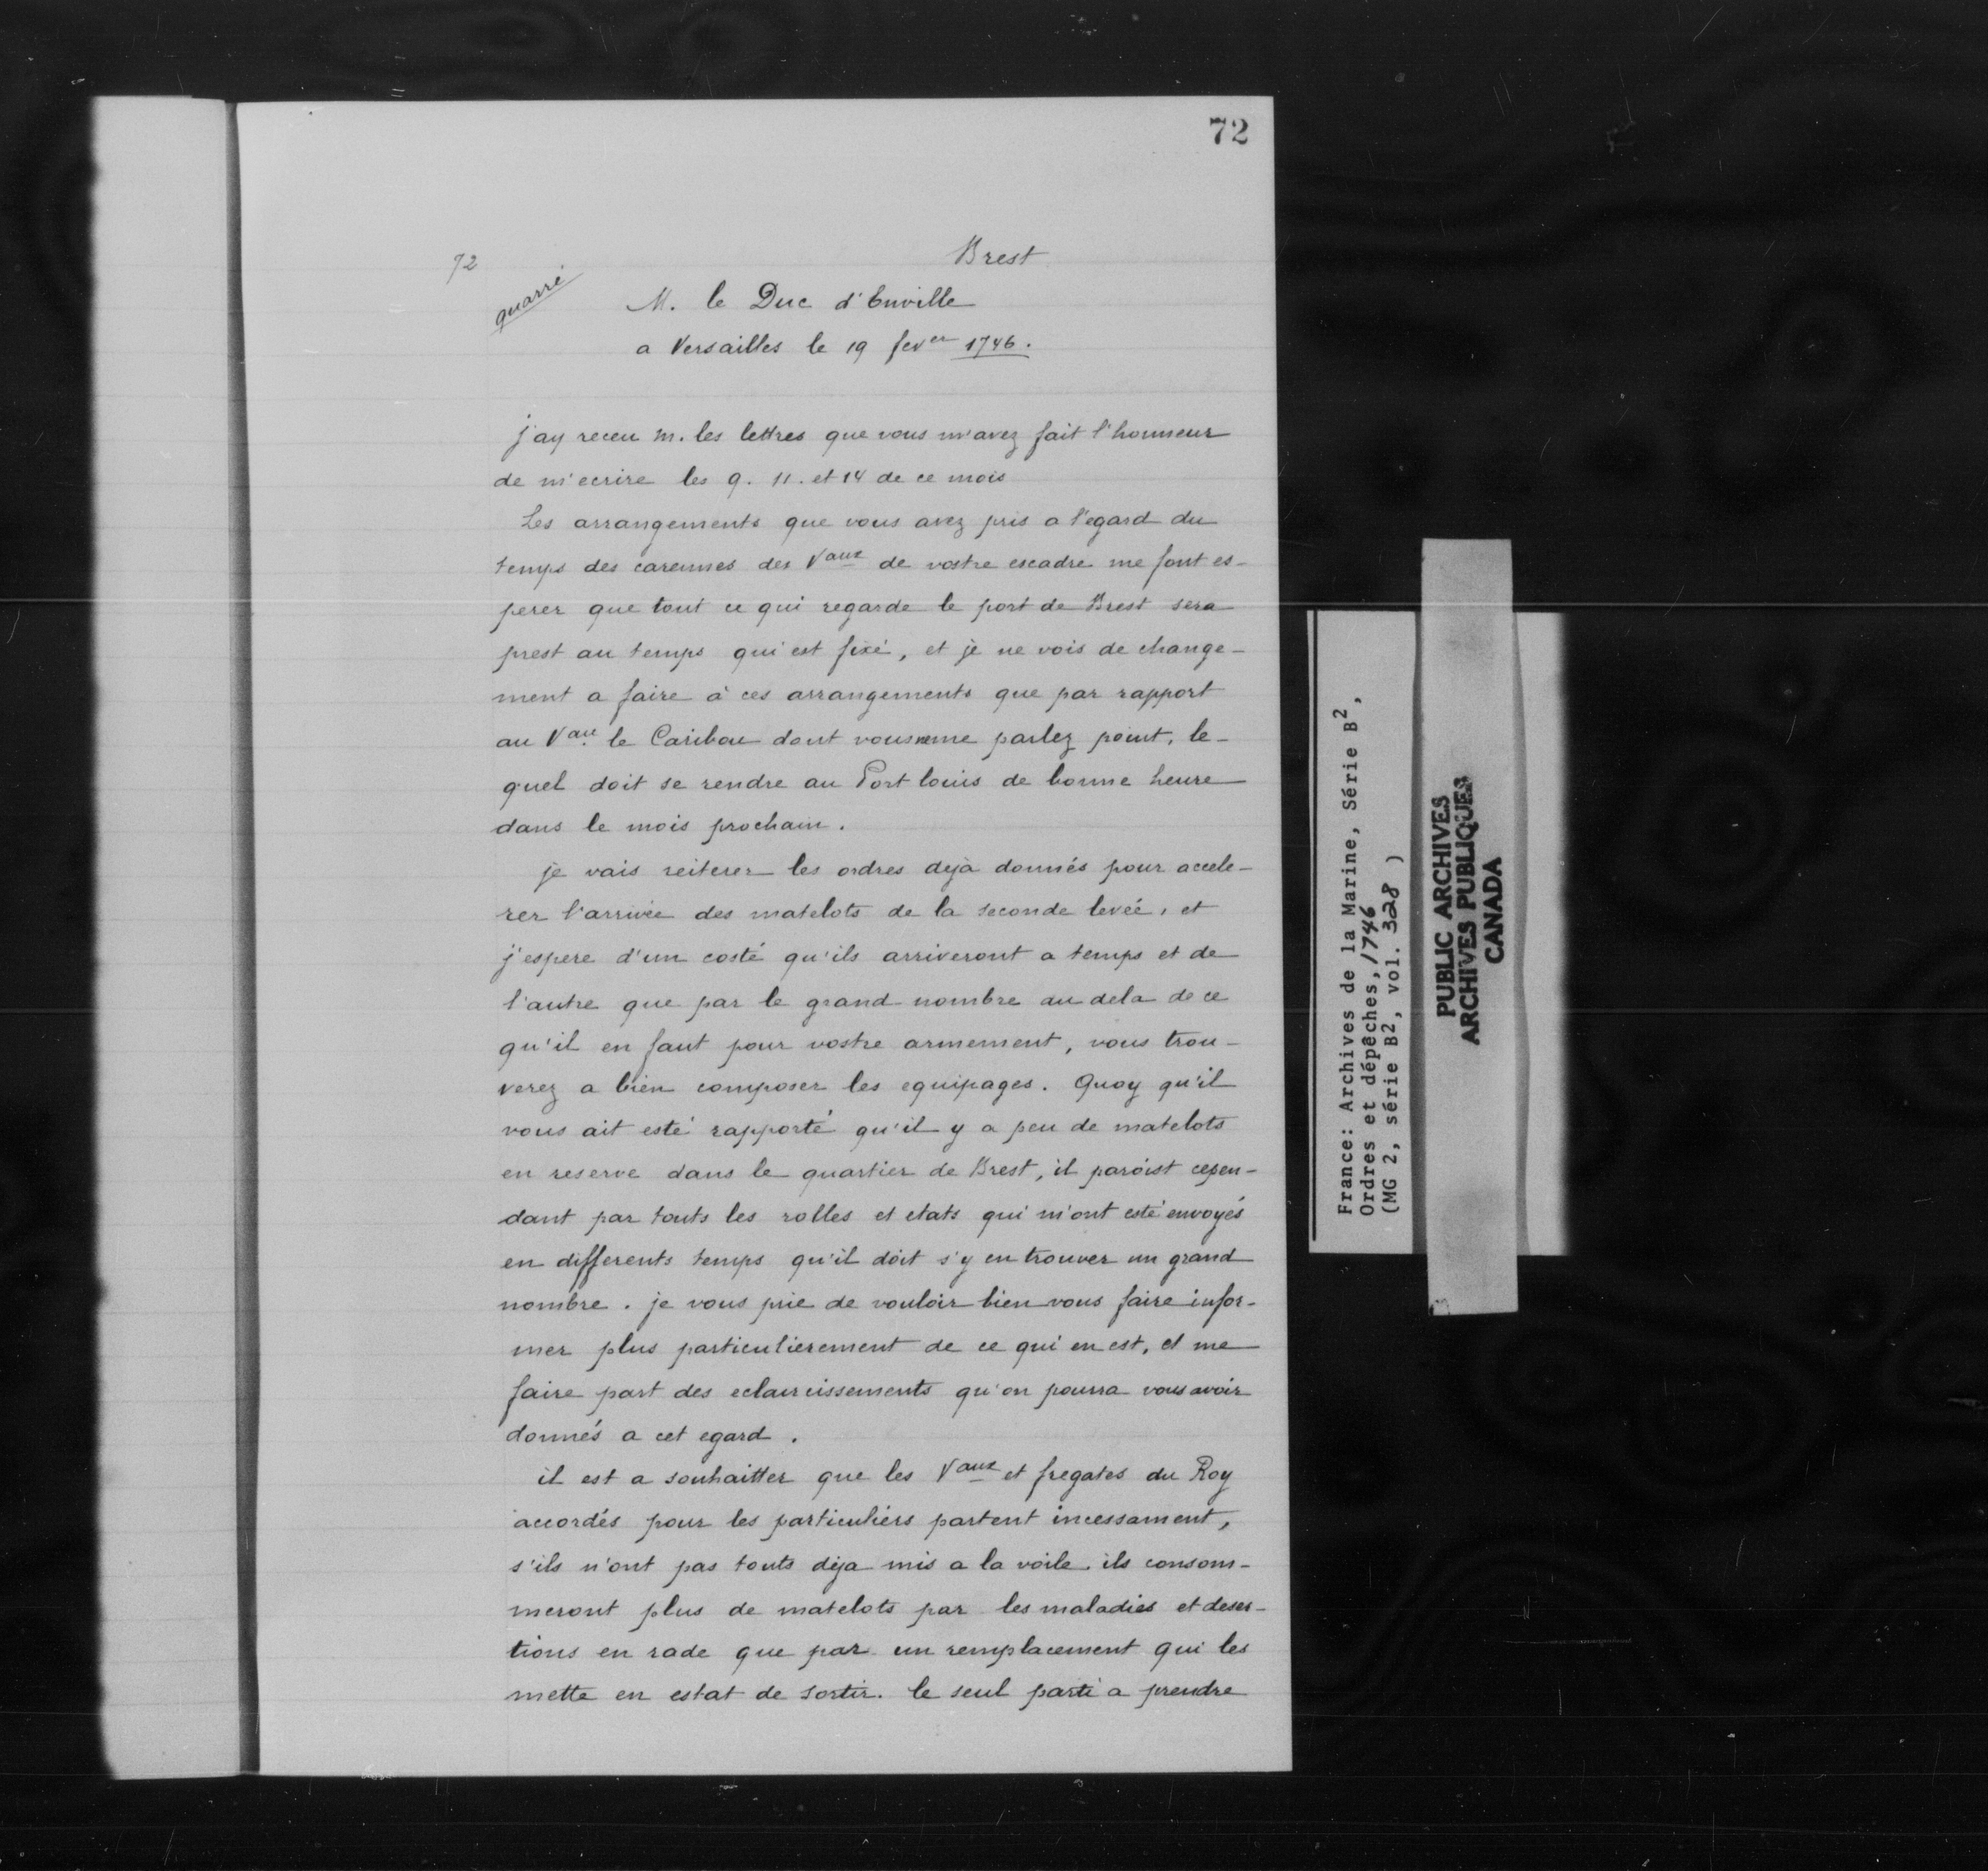 72
72
Brest
quarré
M. le Duc d'Enville
a Versailles le 19 fever 1746.
j'ay receu m. les lettres que vous m'avez fait l'honneur
de m'ecrire les 9. 11. et 14 de ce mois
Les arrangements que vous avez pris a l'egard du
temps des carennes des Vaux de vostre escadre me font es-
perer que tout ce qui regarde le port de Brest sera
prest au temps qui est fixé, et je ne vois de change-
ment a faire à ces arrangements que par rapport
au Vau le Caribou dont vous ne me parlez point, le-
quel doit se rendre au Port louis de bonne heure
dans le mois prochain.
je vais reiterer les ordres dejà donnés pour accele-
rer l'arrivée des matelots de la seconde levée, et
j'espere d'un costé qu'ils arriveront a temps et de
l'autre que par le grand nombre au dela de ce
qu'il en faut pour vostre armement, vous trou-
verez a bien composer les equipages. Quoy qu'il
vous ait esté rapporté qu'il y a peu de matelots
en reserve dans le quartier de Brest, il paroist cepen-
dant par touts les rolles et etats qui m'ont esté envoyés
en differents temps qu'il doit s'y en trouver un grand
nombre. je vous prie de vouloir bien vous faire infor-
mer plus particulierement de ce qui en est, et me
faire part des eclaircissements qu'on pourra vous avoir
donnés a cet egard.
il est a souhaitter que les Vaux et fregates du Roy
accordés pour les particuliers partent incessament,
s'ils n'ont pas touts deja mis a la voile. ils consom-
meront plus de matelots par les maladies et deser-
tions en rade que par un remplacement qui les
mette en estat de sortir. le seul parti a prendre
France: Archives de la Marine, Série B2,
Ordres et dépêches, 1746
(MG 2, série B2, vol. 328 )
PUBLIC ARCHIVES
ARCHIVES PUBLIQUES
CANADA